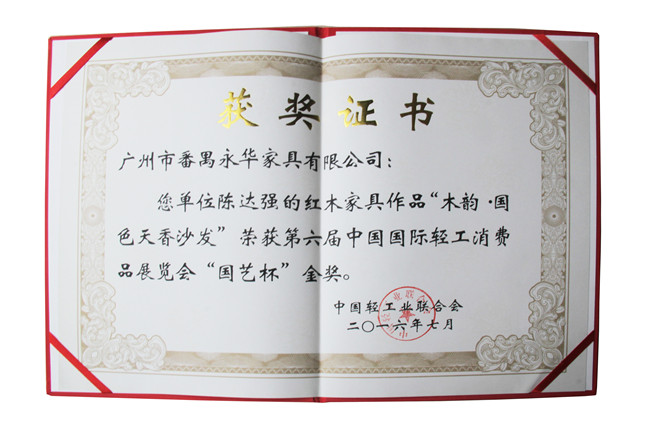 获奖证书
广州市番禺永华家具有限公司：
您单位陈达强的红木家具作品“木韵·国
色天香沙发”荣获第六届中国国际轻工消费
品展览会“国艺杯”金奖。
中国轻工业联合会
二〇一六年七月